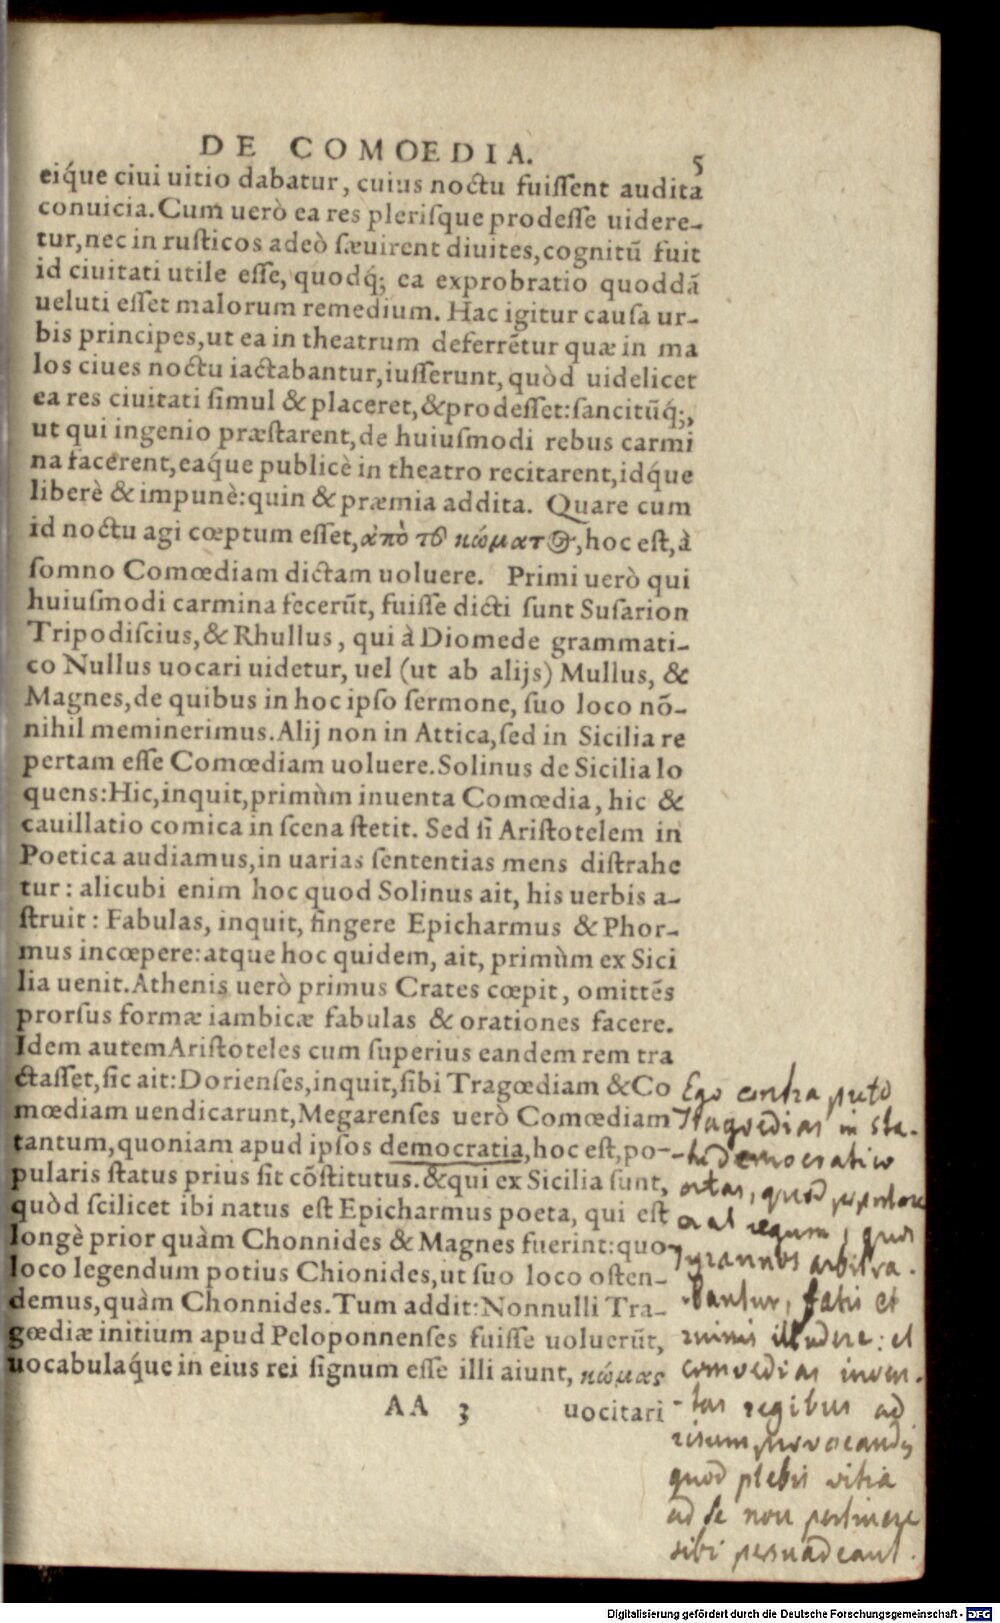 DE COMOEDIA.
5
eiq́ue ciui uitio dabatur, cuius noctu fuissent audita
conuicia. Cum uerò ea res plerisque prodesse uidere-
tur, nec in rusticos adeò sæuirent diuites, cognitũ fuit
id ciuitati utile esse, quodq́; ea exprobratio quoddã
ueluti esset malorum remedium. Hac igitur causa ur-
bis principes, ut ea in theatrum deferrẽtur quæ in ma
los ciues noctu iactabantur, iusserunt, quòd uidelicet
ea res ciuitati simul & placeret, & prodesset: sancitũq́;,
ut qui ingenio præstarent, de huiusmodi rebus carmi
na facerent, eaq́ue publicè in theatro recitarent, idq́ue
liberè & impunè: quin & præmia addita. Quare cum
id noctu agi cœptum esset, ἀπὸ τȣ κώματος, hoc est, à
somno Comœdiam dictam uoluere. Primi uerò qui
huiusmodi carmina fecerũt, fuisse dicti sunt Susarion
Tripodiscius, & Rhullus, qui à Diomede grammati-
co Nullus uocari uidetur, uel (ut ab alijs) Mullus, &
Magnes, de quibus in hoc ipso sermone, suo loco nõ-
nihil meminerimus. Alij non in Attica, sed in Sicilia re
pertam esse Comœdiam uoluere. Solinus de Sicilia lo
quens: Hic, inquit, primùm inuenta Comœdia, hic &
cauillatio comica in scena stetit. Sed si Aristotelem in
Poetica audiamus, in uarias sententias mens distrahe
tur: alicubi enim hoc quod Solinus ait, his uerbis a-
struit: Fabulas, inquit, fingere Epicharmus & Phor-
mus incœpere: atque hoc quidem, ait, primùm ex Sici
lia uenit. Athenis uerò primus Crates cœpit, omittẽs
prorsus formæ iambicæ fabulas & orationes facere.
Idem autem Aristoteles cum superius eandem rem tra
ctasset, sic ait: Dorienses, inquit, sibi Tragœdiam & Co
mœdiam uendicarunt, Megarenses uerò Comœdiam
tantum, quoniam apud ipsos democratia, hoc est, po-
pularis status prius sit cõstitutus. & qui ex Sicilia sunt,
quòd scilicet ibi natus est Epicharmus poeta, qui est
longè prior quàm Chonnides & Magnes fuerint: quo
loco legendum potius Chionides, ut suo loco osten-
demus, quàm Chonnides. Tum addit: Nonnulli Tra-
gœdiæ initium apud Peloponnenses fuisse uoluerũt,
uocabulaq́ue in eius rei signum esse illi aiunt, κώμας
AA 3 uocitari
Ego contra puto
Tragoedias in sta-
-tu democratico
ortas, quod
erat regum, quos
Tyrannos arbitra-
-bantur, fatis et
ruinis illudere: et
comoedias inven-
-tas regibus ad
risum provocandis
quod plebis vitia
ad se non pertinere
sibi persuadeant.
Digitalisierung gefördert durch die Deutsche Forschungsgemeinschaft - DFG